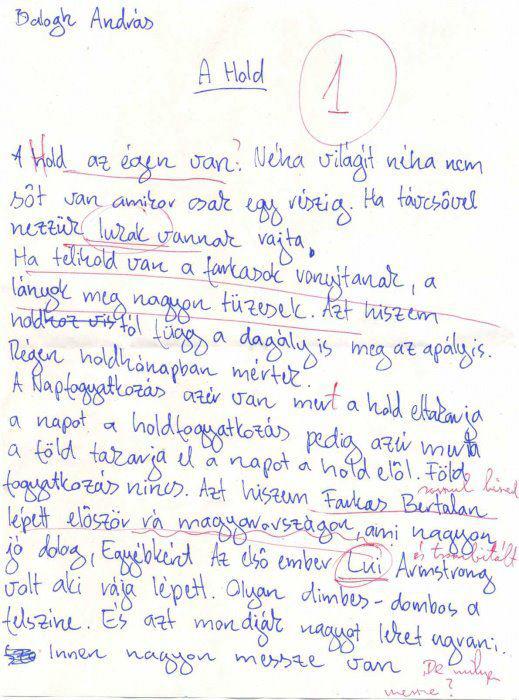 Balogh András
A Hold
1
A Hold az égen van? Néha világít néha nem
sőt van amikor csak egy részig. Ha távcsővel
nezzük lukak vannak rajta.
Ha telihold van a farkasok vonyítanak, a
lányok meg nagyon tüzesek. Azt hiszem
holdhoz vis től függ a dagály is meg az apály is.
Régen holdhónapban mértek.
A Napfogyatkozás azér van mert a hold eltakarja
a napot a holdfogyatkozás pedig azér mert
a föld takarja el a napot a hold elől. Föld
fogyatkozás nincs. Azt hiszem Farkas Bertalan
lépett először rá magyarországon, ami nagyon
és trombitált
jó dolog, Egyébként Az első ember Lui Armstrong
volt aki rája lépett. Olyan dimbes-dombos a
felszíne. És azt mondják nagyot lehet ugrani.
Innen nagyon messze van
De milyen
messze?